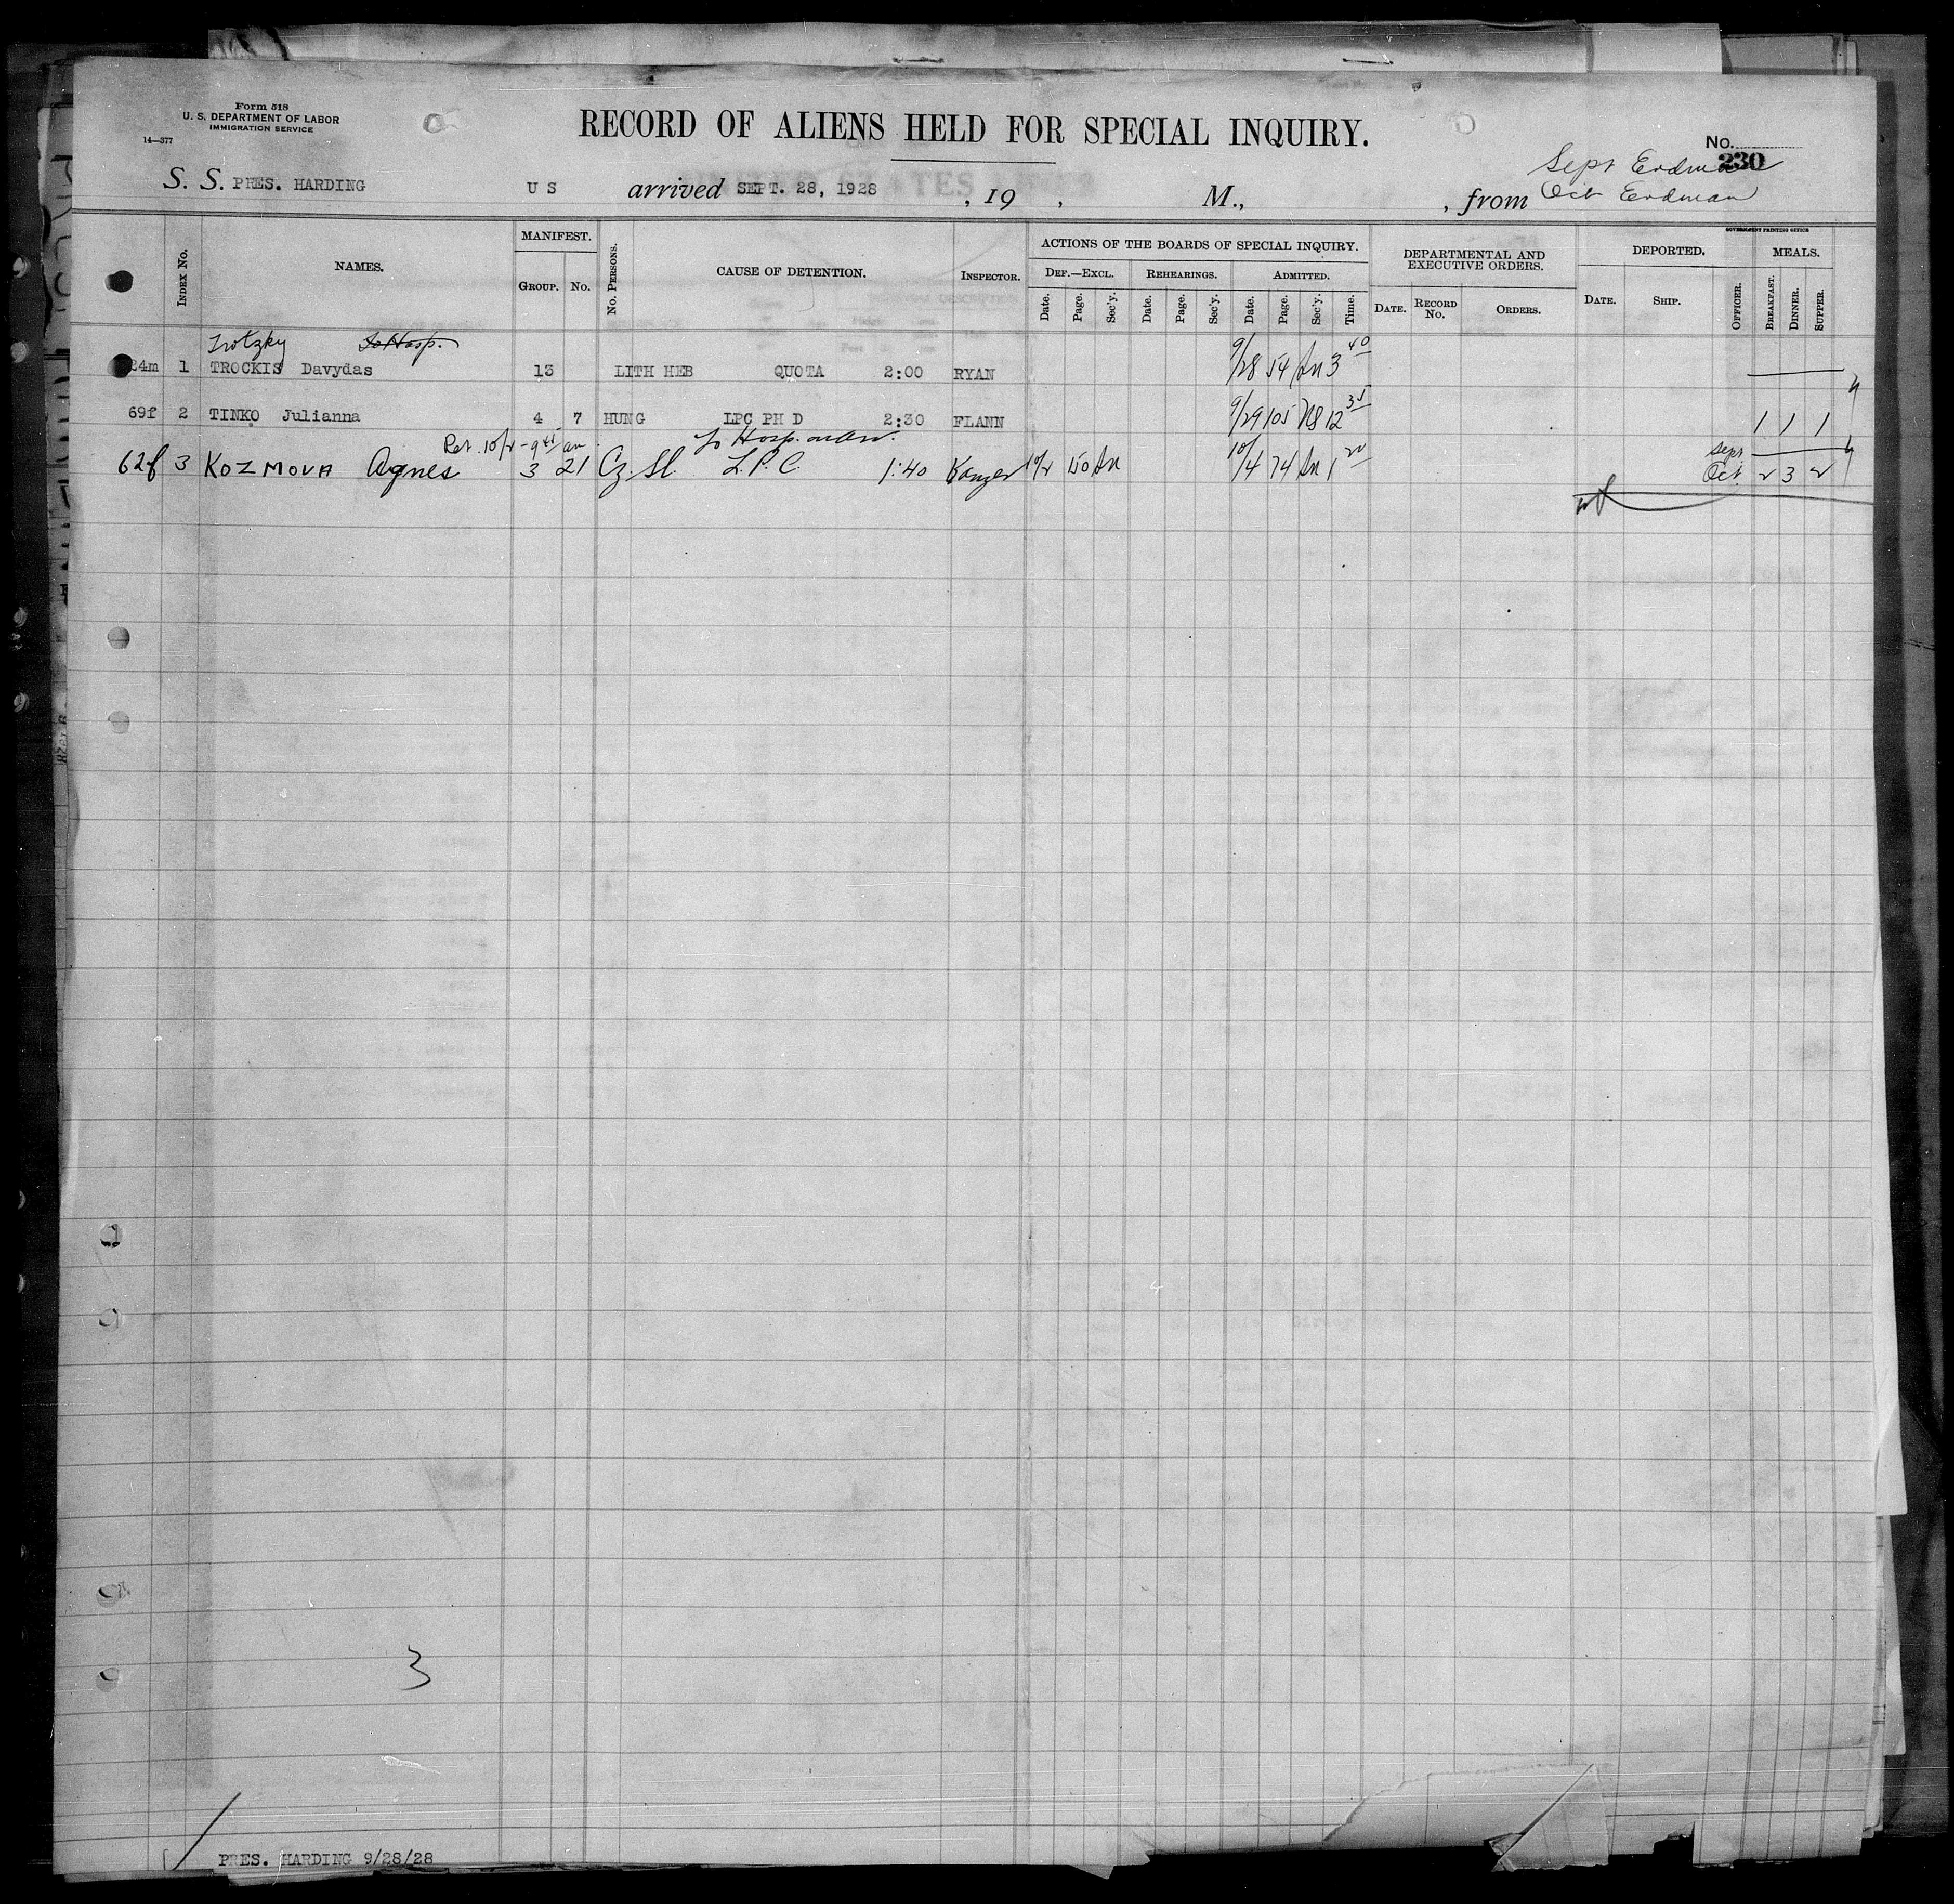 Form 518
U. S. DEPARTMENT OF LABOR
IMMIGRATION SERVICE
14—377
RECORD OF ALIENS HELD FOR SPECIAL INQUIRY.
No. 230
Sept Erdman
Oct Erdman
S. S. PRES. HARDING U S arrived SEPT. 28, 1928, 19 , M., , from
GOVERNMENT PRINTING OFFICE
INDEX No. NAMES. MANIFEST. GROUP. No. No. PERSONS. CAUSE OF DETENTION. INSPECTOR. ACTIONS OF THE BOARDS OF SPECIAL INQUIRY. DEPARTMENTAL AND EXECUTIVE ORDERS. DEPORTED. MEALS.
DEF.—EXCL. REHEARINGS. ADMITTED.
Date. Page. Sec'y. Date. Page. Sec'y. Date. Page. Sec'y. Time. DATE. RECORD No. ORDERS. DATE. SHIP. OFFICER. BREAKFAST. DINNER. SUPPER.
Trotzky To Hosp.
24m 1 TROCKIS Davydas 13 LITH HEB QUOTA 2:00 RYAN 9/28 54 3 40
69f 2 TINKO Julianna 4 7 HUNG LPC PH D 2:30 FLANN 9/29 105 12 35 1 1 1
Ret. 10/2 - 9 45 am To Hosp. on arr. Sept
62f 3 KOZMOVA Agnes 3 21 Cz. Sl. L.P.C. 1:40 10/2 150 10/4 74 1 20 Oct. 2 3 2
3
PRES. HARDING 9/28/28